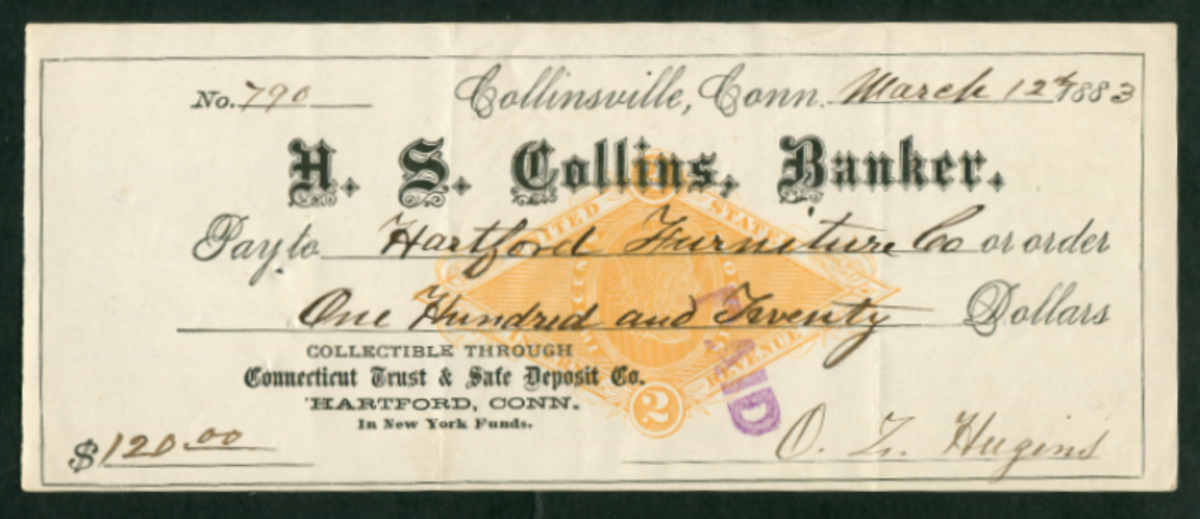 No. 790 Collinsville, Conn. March 12th 1883
H. S. Collins, Banker.
Pay to Hartford Furniture Co or order
One Hundred and Twenty Dollars
UNITED STATES
INTERNAL REVENUE
2
PAID
COLLECTIBLE THROUGH
Connecticut Trust & Safe Deposit Co.
HARTFORD, CONN.
In New York Funds.
$120.00
O. Z. Hugins